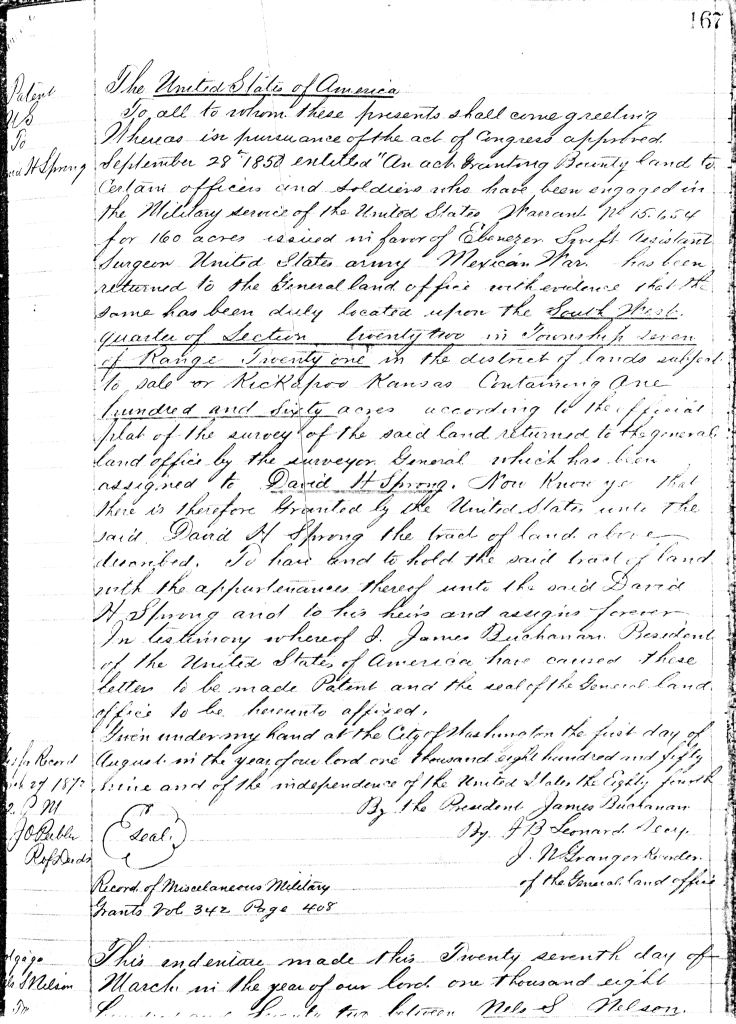 167
Patent
US
To
David H Sprong
The United States of America
To all to whom these presents shall come greeting
Whereas in pursuance of the act of Congress approved
September 28th 1850 entitled "An act Granting Bounty land to
Certain officers and soldiers who have been engaged in
the Military service of the United States Warrant No 15.654
for 160 acres issued in favor of Ebenezer Swift Assistant
Surgeon United States army Mexican War has been
returned to the General land office with evidence that the
same has been duly located upon the South West
quarter of Section twenty two in Township seven
of Range Twenty one in the district of lands subject
to sale or Kickapoo Kansas Containing One
hundred and Sixty acres according to the official
plat of the survey of the said land returned to the general
land office by the surveyor General which has been
assigned to David H Sprong. Now Know ye that
there is therefore Granted by the United States unto the
said David H Sprong the tract of land above
described. To have and to hold the said tract of land
with the appurtenances thereof unto the said David
H Sprong and to his heirs and assigns forever
In testimony whereof I. James Buchanan President
of the United States of America have caused these
letters to be made Patent and the seal of the General land
office to be hereunto affixed.
Given under my hand at the City of Washington the first day of
August in the year of our lord one thousand eight hundred and fifty
nine and of the independence of the United States the Eighty fourth
By the President James Buchanan
By J B Leonard Secy
J. N Granger Recorder
of the General land office
seal
for Record
27 187
P M
J O Peebler
Reg Deeds
Record of Miscelaneous Military
Grants Vol 342 Page 408
This indenture made this Twenty seventh day of
March in the year of our lord one thousand eight
hundred and Seventy two between Nels S. Nelson
S Nelson
To